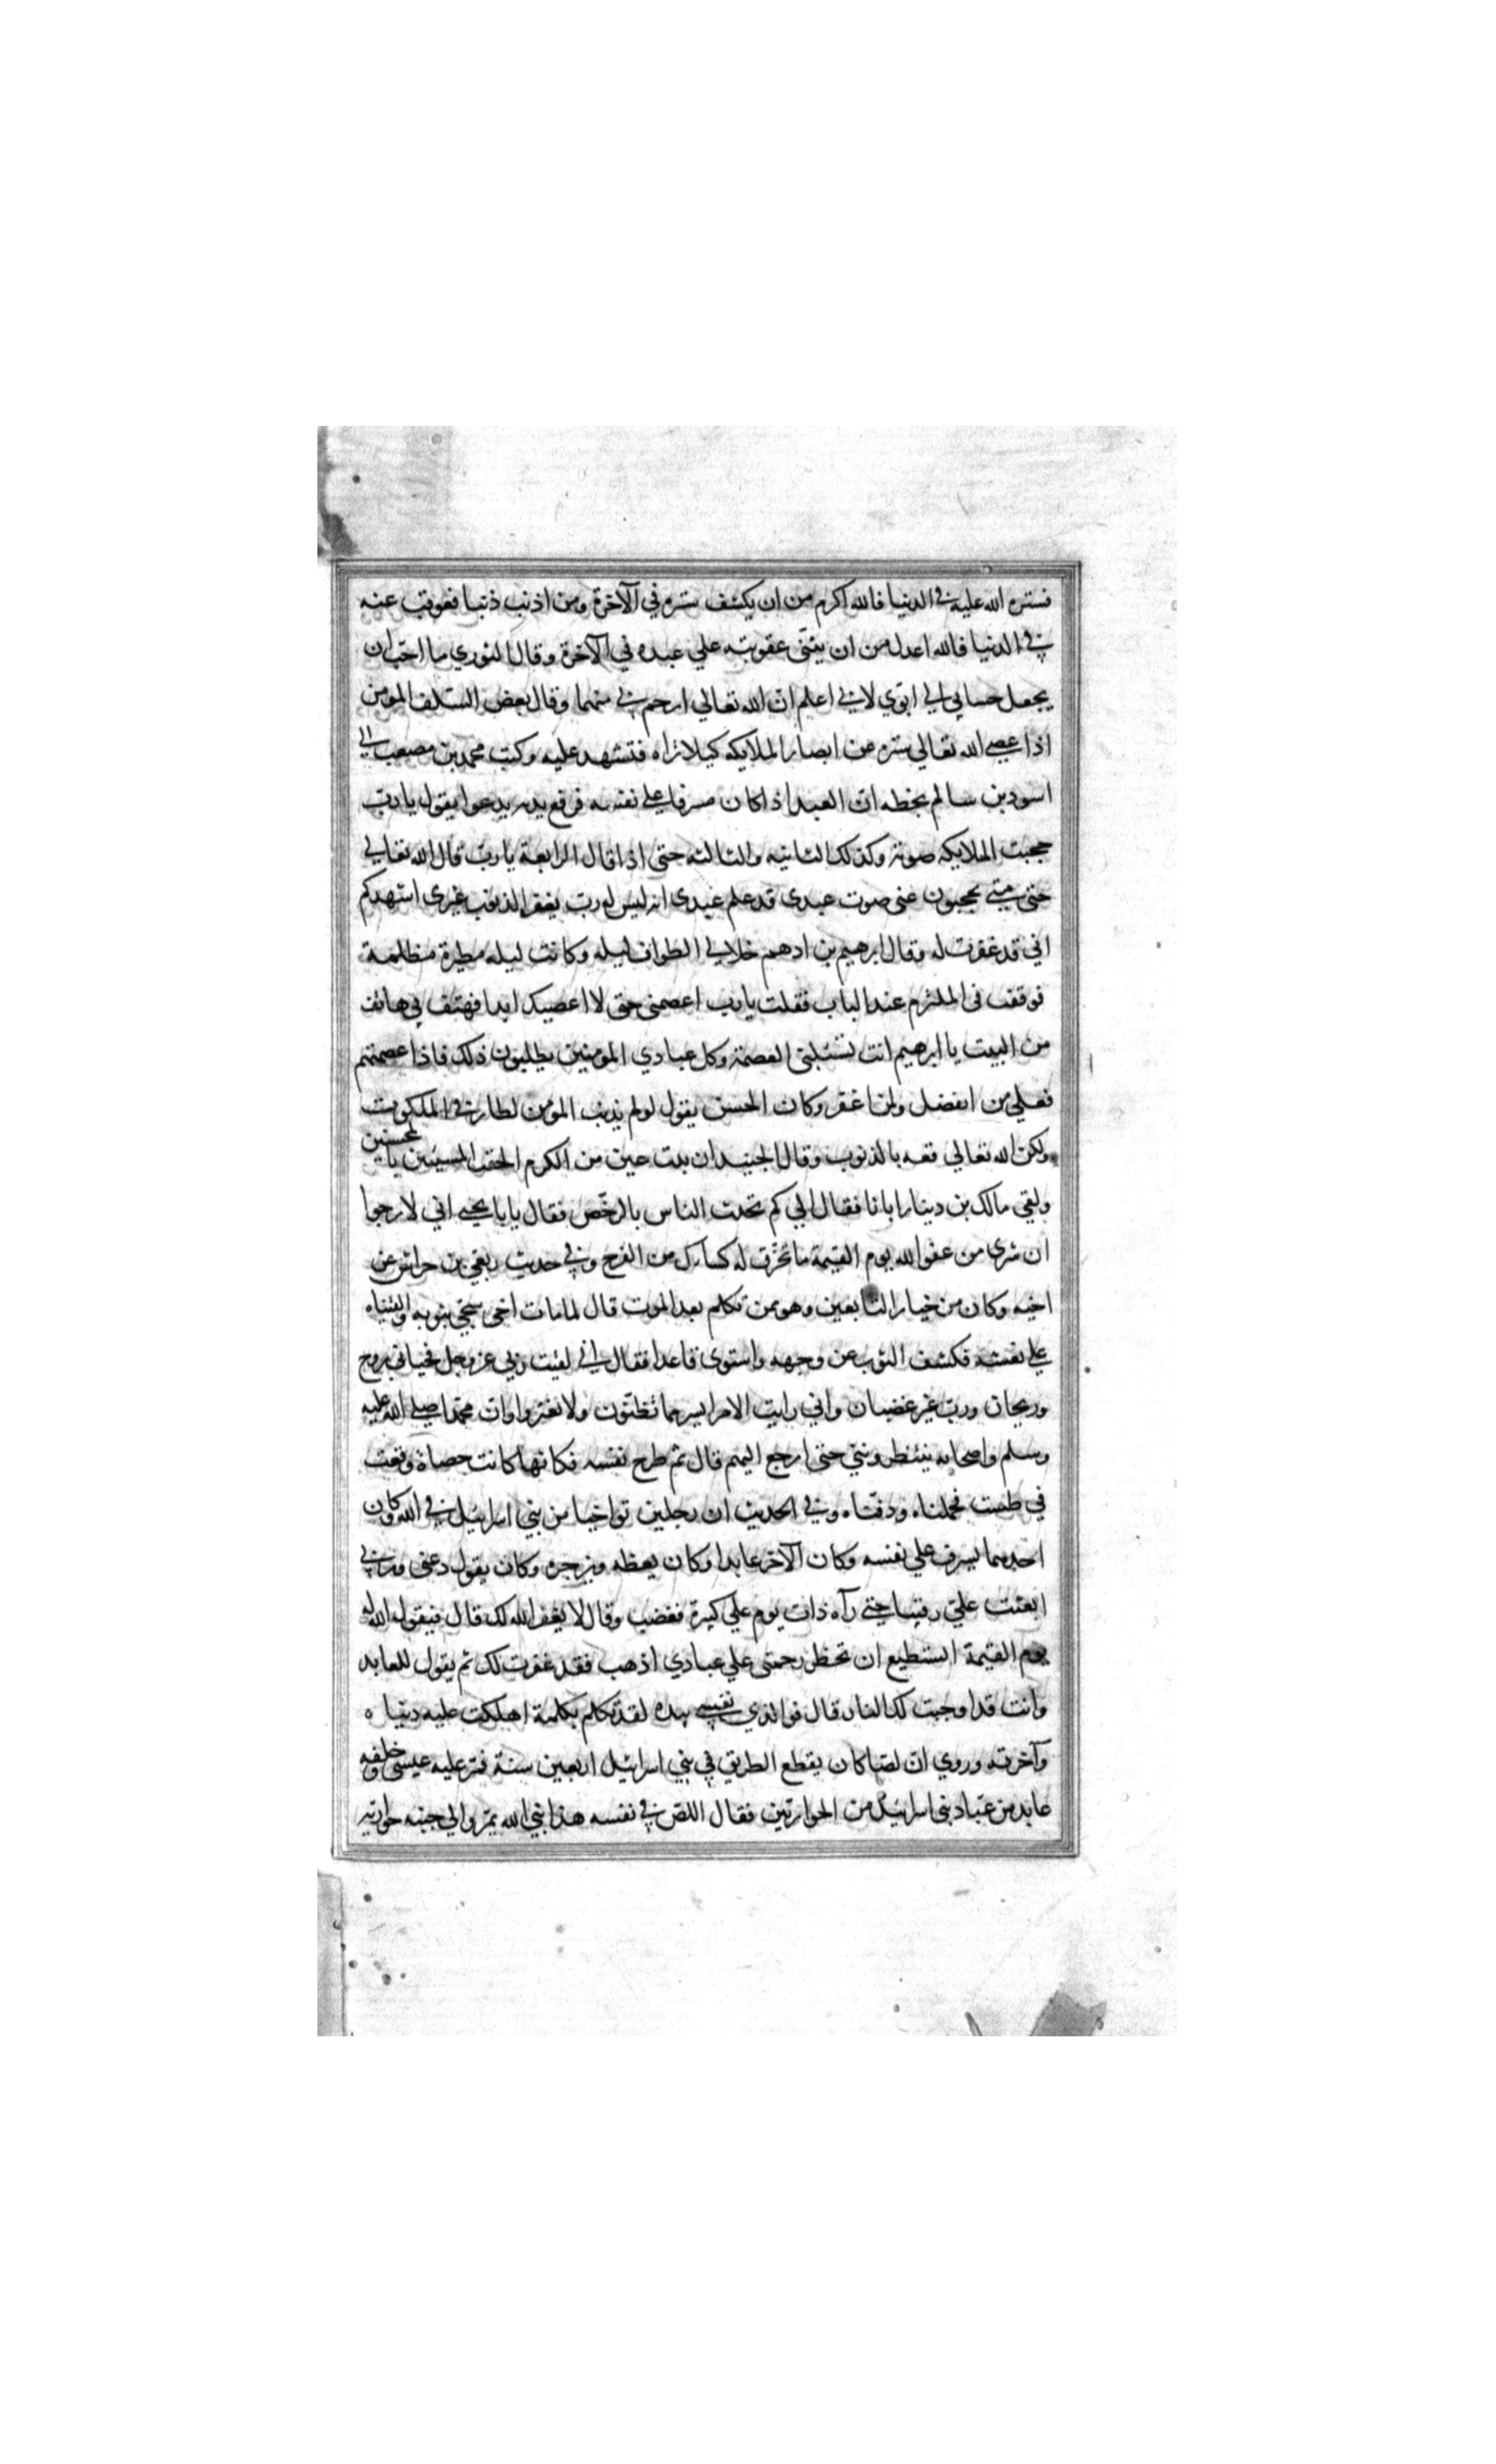 فستره الله عليه في الدنيا فالله اكرم من ان يكشف ستره في الآخرة ومن اذنب ذنبا فعوقب عنه
في الدنيا فالله اعدل من ان يثنّي عقوبته علي عبده في الآخرة وقال الثوري ما احبّ ان
يجعل حسابي الي ابوّي لاني اعلم ان الله تعالي ارحم بي منهما وقال بعض السلف المؤمن
اذا عصي الله تعالي ستره من ابصار الملايكه كيلا تراه فتشهد عليه وكتب محمد بن مصعب الي
اسود بن سالم بخطه ان العبد اذا كان مسرفا علي نفسه فرفع يديه يدعوا يقول يا ربّ
حجبت الملايكه صوته وكذلك الثانيه والثالثه حتى اذا قال الرابعة يا ربّ قال الله تعالي
حتى متي تحجبون عني صوت عبدى قد علم عبدى انه ليس له ربّ يغفر الذنوب غيرى اشهدكم
اني قد غفرت له وقال ابرهيم بن ادهم خلا لي الطواف ليله وكانت ليله مطيرة مظلمة
فوقفت فى الملتزم عند الباب فقلت يا رب اعصمنى حتى لا اعصيك ابدا فهتف بي هاتف
من البيت يا ابرهيم انت تسئلني العصمة وكل عبادي المؤمنين يطلبون ذلك فاذا عصمتهم
فعلي من اتفضل ولمن اغفر وكان الحسن يقول لو لم يذنب المؤمن لطار في الملكوت
ولكن الله تعالي قمعه بالذنوب وقال الجنيد ان بدت عين من الكرم الحقت المسيئين بالمحسنين
ولقي مالك بن دينار ابانا فقال الي كم تحدث الناس بالرخّص فقال يا با يحيي اني لارجوا
ان ترى من عفو الله يوم القيمة ما تخرّق له كساءك من الفرح وفي حديث ربعي بن حراش عن
اخيه وكان من خيار التابعين وهو ممن تكلم بعد الموت قال لما مات اخى سجّي بثوبه والقيناه
علي نعشه فكشف الثوب عن وجهه واستوى قاعدا فقال اني لقيت ربي عز وجل فحياني بروح
وريحان ورب غير غضبان واني رايت الامر ايسر مما تظنّون ولا تغتروا وان محمدا صلي الله عليه
وسلم واصحابه ينتظرونني حتى ارجع اليهم قال ثم طرح نفسه فكانها كانت حصاة وقعت
في طست فحملناه ودفنّاه وفي الحديث ان رجلين تواخيا من بني اسرائيل في الله وكان
احدهما يسرف علي نفسه وكان الآخر عابدا وكان يعظه ويزجره وكان يقول دعنى وربي
ابعثت عليّ رقيبا حتي رآه ذات يوم علي كبيرة فغضب وقال لا يغفر الله لك قال فيقول الله له
يوم القيمة ايستطيع ان تحظر رحمتى علي عبادي اذهب فقد غفرت لك ثم يقول للعابد
وانت قد اوجبت لك النار قال فوالذي نفسي بيده لقد تكلم بكلمة اهلكت عليه دنياه
وآخرته وروي ان لصّا كان يقطع الطريق في بني اسرائيل اربعين سنة فمر عليه عيسى وخلفه
عابد من عبّاد بنى اسرائيل من الحواريّين فقال اللصّ في نفسه هذا نبي الله يمرّ والي جنبه حواريّه